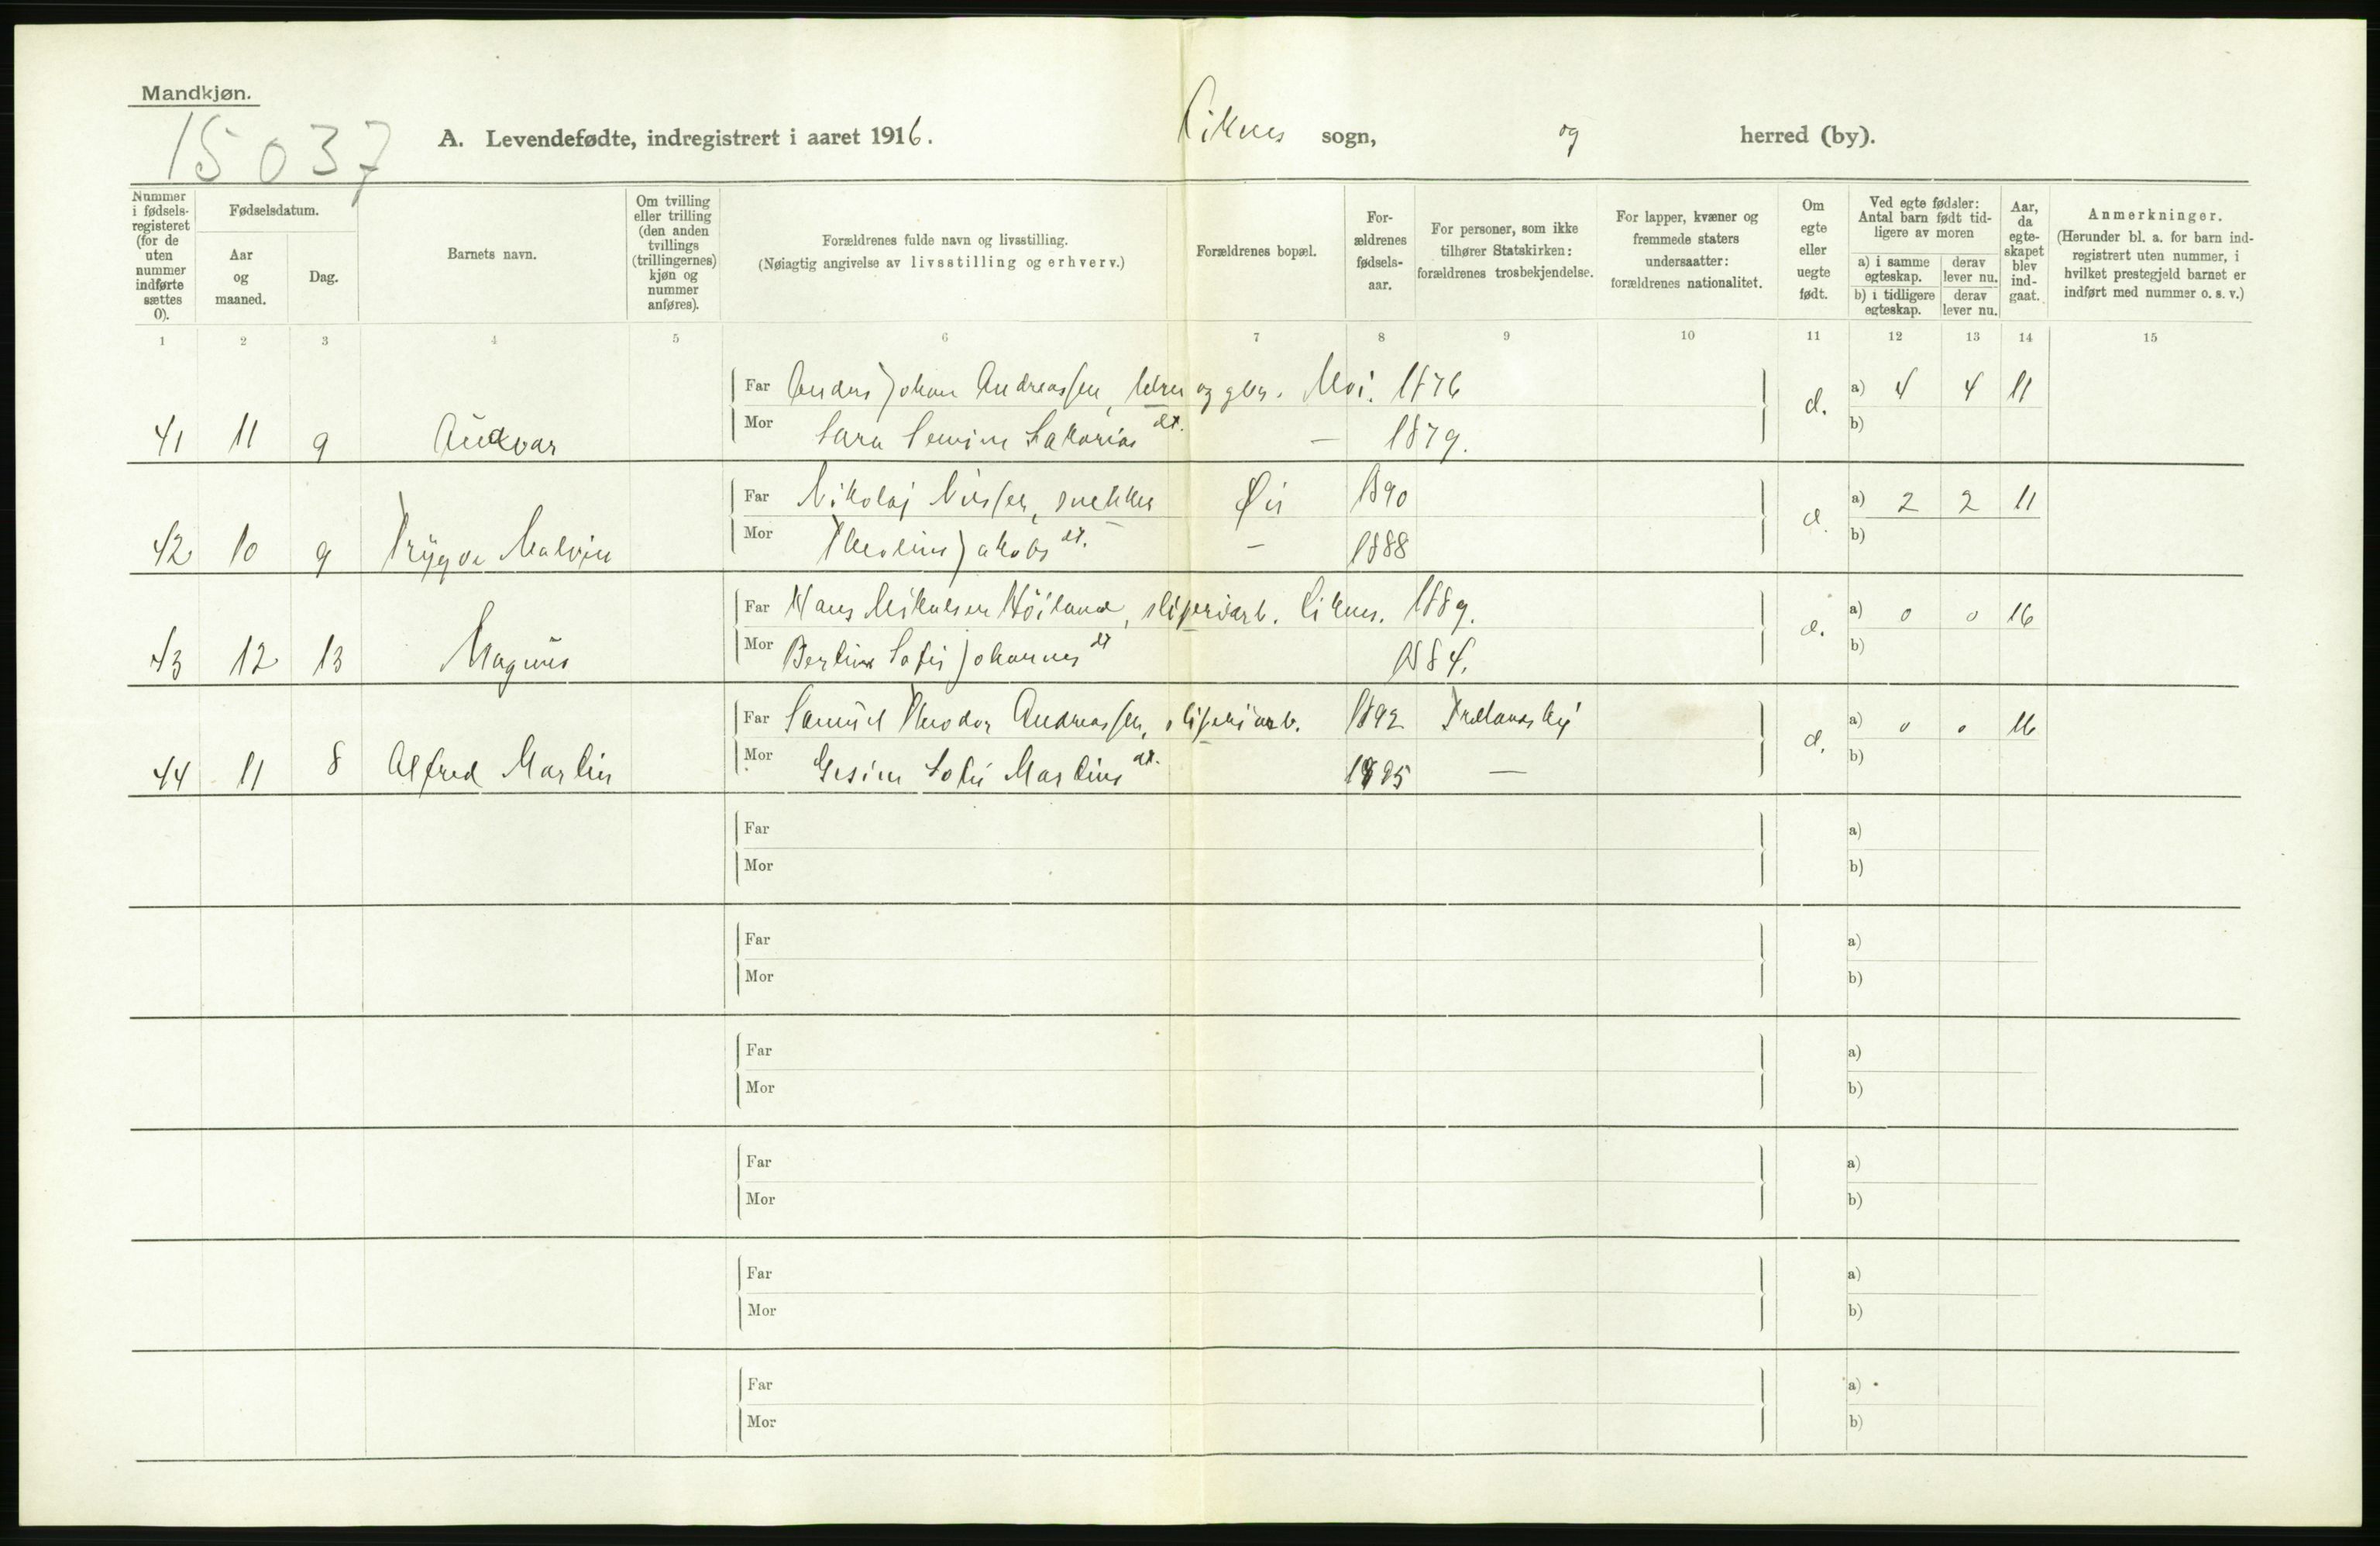 Mandkjøn.
15037
A. Levendefødte, indregistrert i aaret 1916. Liknes sogn, og herred (by).
Nummer i fødsels-registeret (for de uten nummer indførte sættes 0).
Fødselsdatum.
Aar og maaned.
Dag.
Barnets navn.
Om tvilling eller trilling (den anden tvillings (trillingernes) kjøn og nummer anføres).
Forældrenes fulde navn og livsstilling.
(Nøiagtig angivelse av livsstilling og erhverv.)
Forældrenes bopæl.
For-ældrenes fødsels-aar.
For personer, som ikke tilhører Statskirken: forældrenes trosbekjendelse.
For lapper, kvæner og fremmede staters undersaatter: forældrenes nationalitet.
Om egte eller uegte født.
Ved egte fødsler: Antal barn født tid-ligere av moren
a) i samme egteskap. derav lever nu.
b) i tidligere egteskap. derav lever nu.
Aar, da egte-skapet blev ind-gaat.
Anmerkninger.
(Herunder bl. a. for barn ind-registrert uten nummer, i hvilket prestegjeld barnet er indført med nummer o. s. v.)
1 2 3 4 5 6 7 8 9 10 11 12 13 14 15
Far Anders Johan Andreassen, og gbr. Moi. 1876 a) 4 4 11
41 11 9 Audvar Mor Sara Sakarias dt. — 1879. b)
Far Nikolaj Nilssen, snekker Øie 1890 a) 2 2 11
42 10 9 Trygve Malvin Mor Theoline Jakobs dt. — 1888 b)
Far Hans Mikalsen Höiland, sliperiarb. Liknes. 1889. a) 0 0 16
43 12 13 Magnus Mor Berline Sofie Johannes dt 1884. b)
Far Samuel Theodor Andreassen, sliperiarb. 1892 a) 0 0 16
44 11 8 Alfred Martin Mor Gesine Sofie Martins dt. 1895 — b)
Far a)
Mor b)
Far a)
Mor b)
Far a)
Mor b)
Far a)
Mor b)
Far a)
Mor b)
Far a)
Mor b)